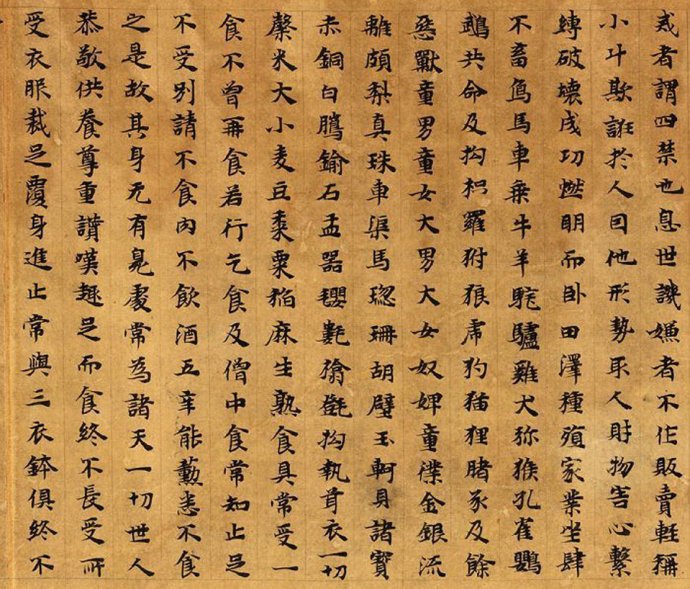 戒者謂四禁也息世譏嫌者不作販賣輕稱
小斗欺誑於人因他形勢取人財物害心繫
縛破壞成功燃明而卧田澤種殖家業坐肆
不畜象馬車乘牛羊駝驢雞犬猕猴孔雀鸚
鵡共命及拘枳羅犲狼虎豹猫狸猪豕及餘
惡獸童男童女大男大女奴婢童僕金銀流
離頗梨真珠車渠馬瑙珊胡璧玉軻貝諸寶
赤銅白鑞鍮石盂器氍毹毾㲪拘執耳衣一切
穀米大小麦豆黍粟稻麻生熟食具常受一
食不曾再食若行乞食及僧中食常知止足
不受別請不食肉不飲酒五辛能薰悉不食
之是故其身无有臭處常為諸天一切世人稱
恭敬供養尊重讚嘆趣足而食終不長受所
受衣服裁足覆身進止常與三衣鉢俱終不